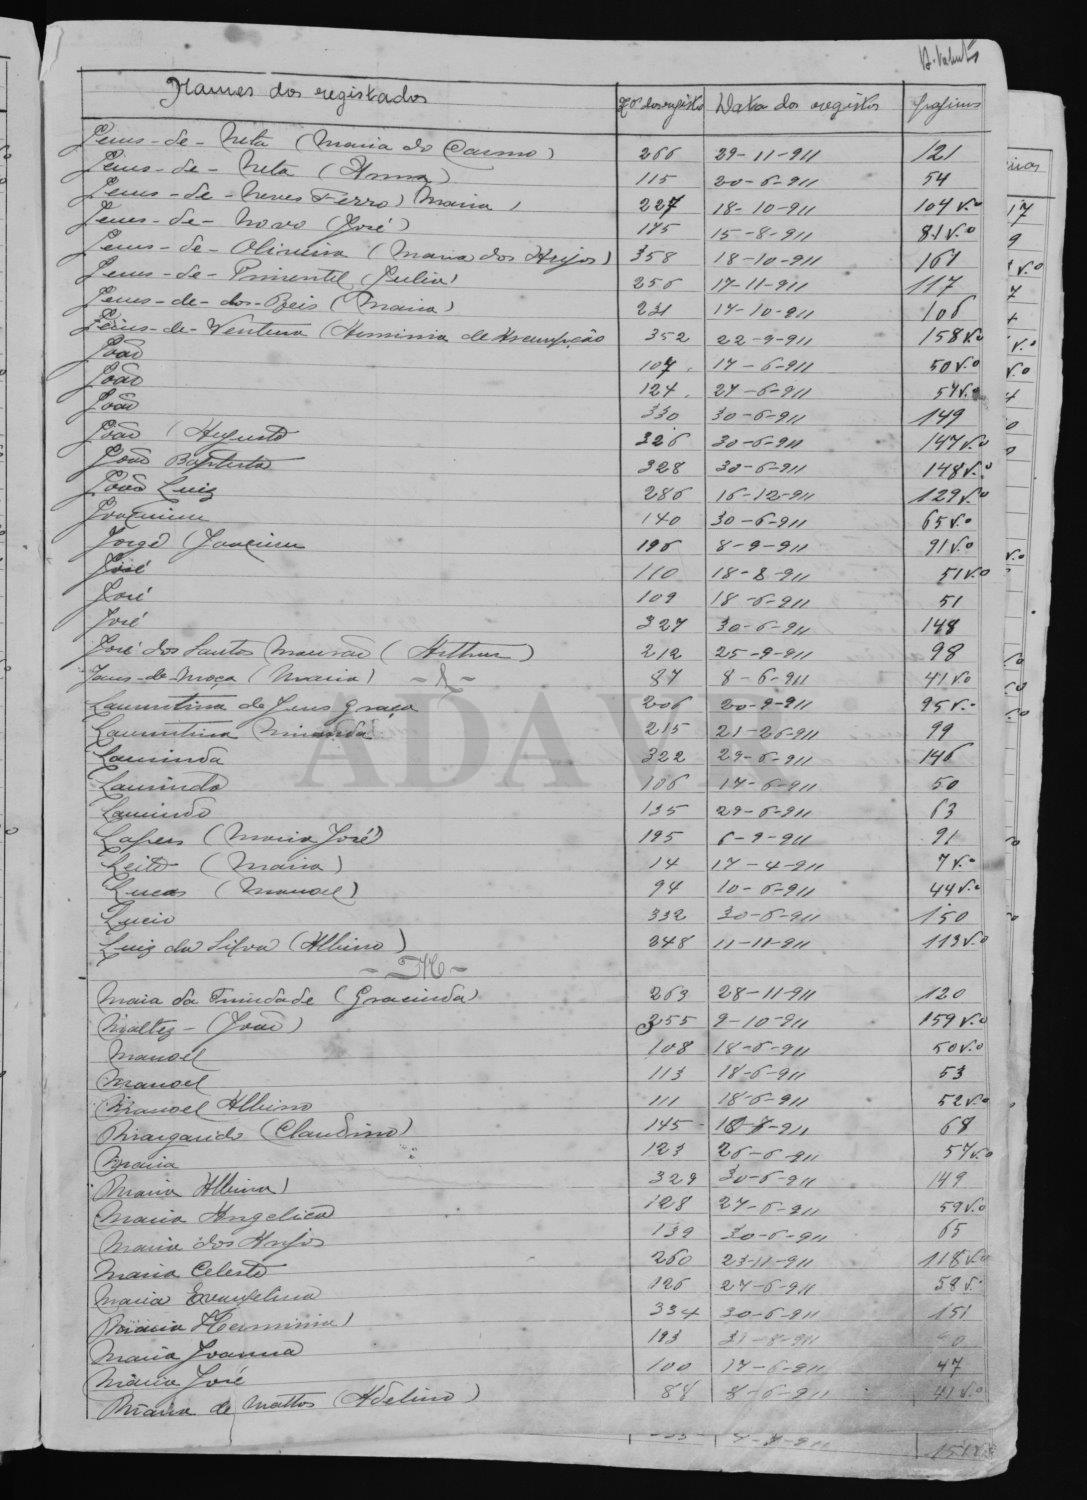 Nomes dos registados Nº dos registos Data dos registos Paginas
Jesus-de-Neta (Maria do Carmo) 266 29-11-911 121
Jesus-de-Neta (Anna) 115 20-6-911 54
Jesus-de-Neves Ferro) Maria) 227 18-10-911 104 v.o
Jesus-de-Novo (José) 175 15-8-911 81 v.o
Jesus-de-Oliveira (Maria dos Anjos) 358 18-10-911 161
Jesus-de-Pimentel (Julia) 256 17-11-911 117
Jesus-de-dos-Reis (Maria) 231 17-10-911 106
Jesus-de-Ventura (Herminia de Assumpção 352 22-9-911 158 v.o
João 107 17-6-911 50 v.o
João 124 27-6-911 57 v.o
João 330 30-6-911 149
João (Augusto 326 30-6-911 147 v.o
João Baptista 328 30-6-911 148 v.o
João Luiz 286 16-12-911 129 v.o
Joaquim 140 30-6-911 65 v.o
Jorge (Joaquim 196 8-9-911 91 v.o
José 110 18-8-911 51 v.o
José 109 18-6-911 51
José 327 30-6-911 148
José dos Santos Mourão (Arthur) 212 25-9-911 98
Jesus-de-Moça (Maria) 87 8-6-911 41 v.o
-L-
Laurentina de Jesus Graça 206 20-9-911 95 v.-
Laurentina Miranda 215 21-26-911 99
Laurinda 322 29-6-911 146
Laurindo 106 17-6-911 50
Laurindo 135 29-6-911 63
Lopes (Maria José) 195 6-9-911 91
Leite (Maria) 14 17-4-911 7 v.o
Lucas (Manoel) 94 10-6-911 44 v.o
Lucio 332 30-6-911 150
Luiz da Silva (Albino) 248 11-11-911 113 v.o
-M-
Maia da Trindade (Gracinda) 263 28-11-911 120
Maltez-(João) 355 9-10-911 159 v.o
Manoel 108 18-6-911 50 v.o
Manoel 113 18-6-911 53
Manoel Albino 111 18-6-911 52 v.o
Margarido (Claudino) 145 18-7-911 68
Maria 123 26-6-911 57 v.o
Maria Albina) 329 30-6-911 149
Maria Angelica 128 27-6-911 59 v.o
Maria dos Anjos 139 30-6-911 65
Maria Celeste 260 23-11-911 118 v.o
Maria Evangelina 126 27-6-911 58 v.
Maria Herminia) 334 30-6-911 151
Maria Joanna 193 31-8-911
Maria José 100 17-6-911 47
Maria de Mattos (Adelino) 88 8-6-911 41 v.o
ADAVR